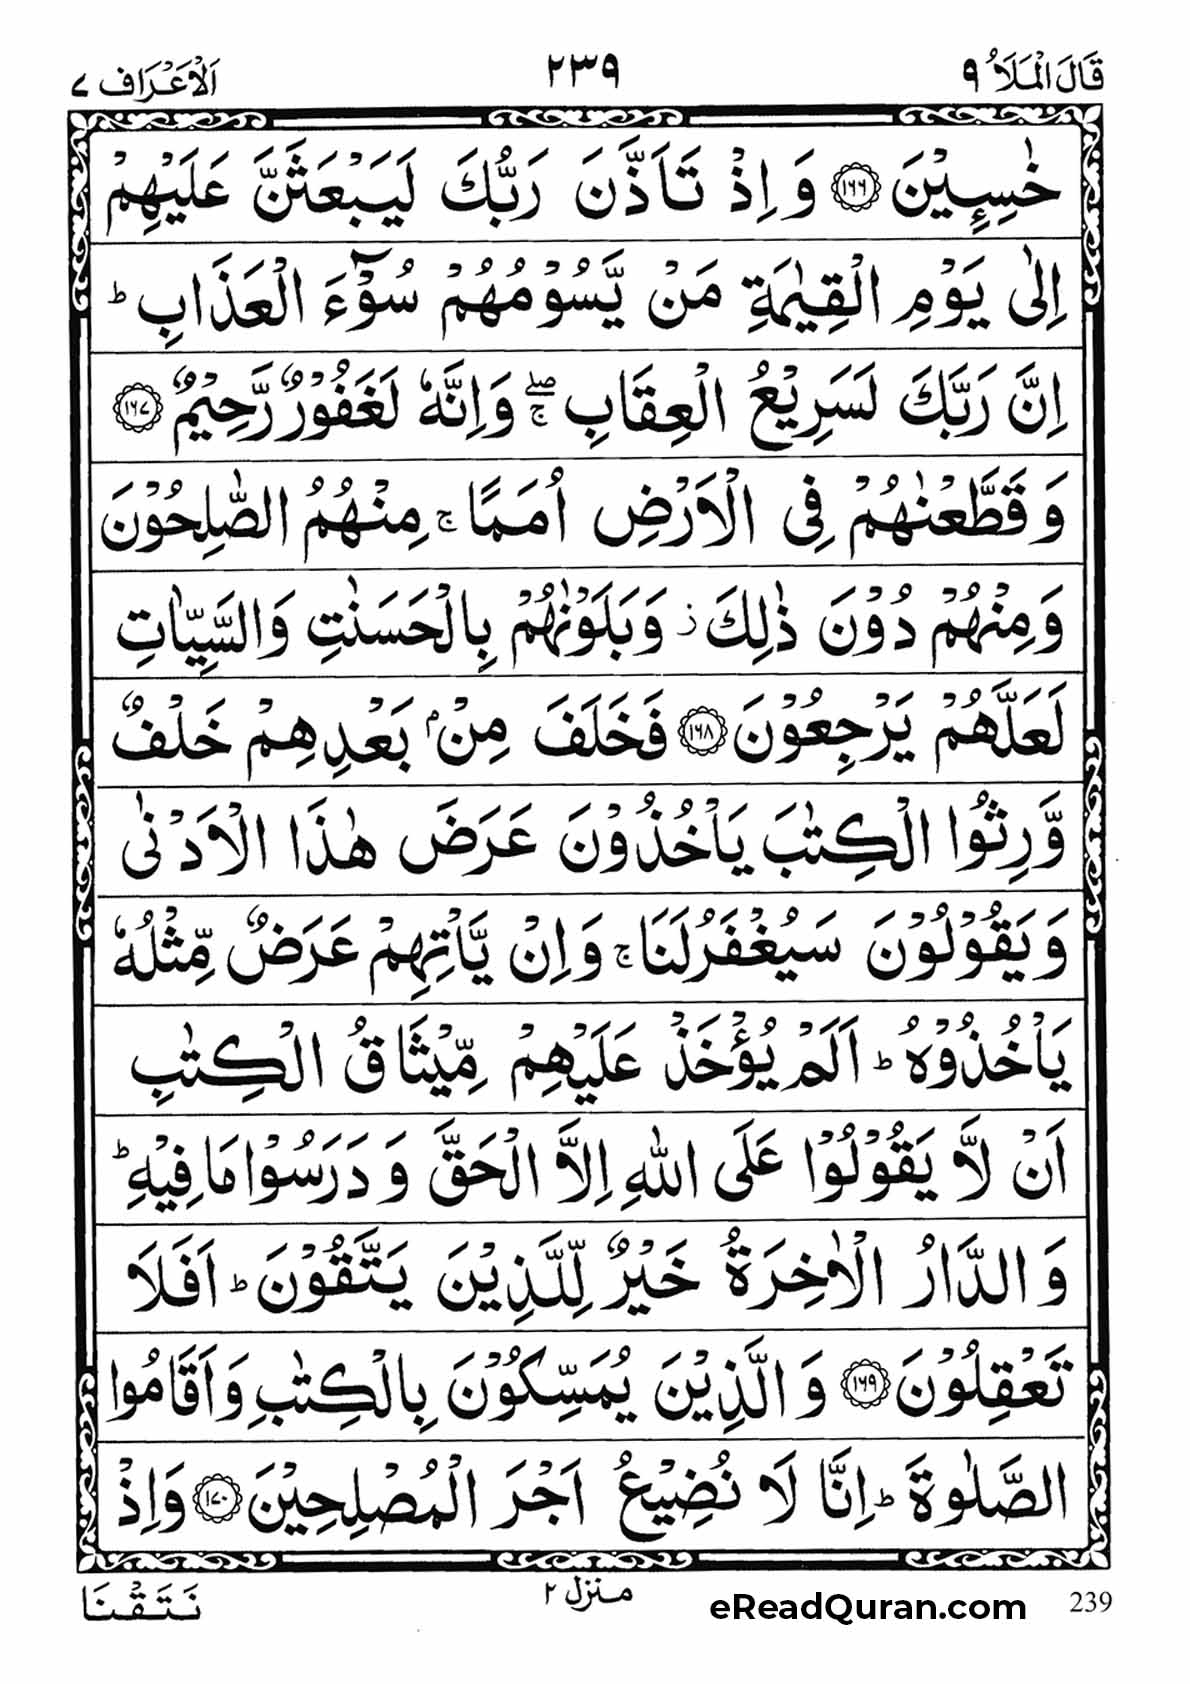 قَالَ الْمَلَاُ ٩ ٢٣٩ اَلْاَعْرَاف ٧
خٰسِـِٕيْنَ ١٦٦ وَ اِذْ تَاَذَّنَ رَبُّكَ لَيَبْعَثَنَّ عَلَيْهِمْ
اِلٰى يَوْمِ الْقِيٰمَةِ مَنْ يَّسُوْمُهُمْ سُوْٓءَ الْعَذَابِ ؕ
اِنَّ رَبَّكَ لَسَرِيْعُ الْعِقَابِ ۖۚ وَاِنَّهٗ لَغَفُوْرٌ رَّحِيْمٌ ١٦٧
وَ قَطَّعْنٰهُمْ فِى الْاَرْضِ اُمَمًا ۚ مِنْهُمُ الصّٰلِحُوْنَ
وَمِنْهُمْ دُوْنَ ذٰلِكَ ز وَبَلَوْنٰهُمْ بِالْحَسَنٰتِ وَالسَّيِّاٰتِ
لَعَلَّهُمْ يَرْجِعُوْنَ ١٦٨ فَخَلَفَ مِنْۢ بَعْدِهِمْ خَلْفٌ
وَّرِثُوا الْكِتٰبَ يَاْخُذُوْنَ عَرَضَ هٰذَا الْاَدْنٰى
وَيَقُوْلُوْنَ سَيُغْفَرُ لَنَا ۚ وَاِنْ يَّاْتِهِمْ عَرَضٌ مِّثْلُهٗ
يَاْخُذُوْهُ ؕ اَلَمْ يُؤْخَذْ عَلَيْهِمْ مِّيْثَاقُ الْكِتٰبِ
اَنْ لَّا يَقُوْلُوْا عَلَى اللّٰهِ اِلَّا الْحَقَّ وَ دَرَسُوْا مَا فِيْهِ ؕ
وَ الدَّارُ الْاٰخِرَةُ خَيْرٌ لِّلَّذِيْنَ يَتَّقُوْنَ ؕ اَفَلَا
تَعْقِلُوْنَ ١٦٩ وَ الَّذِيْنَ يُمَسِّكُوْنَ بِالْكِتٰبِ وَاَقَامُوا
الصَّلٰوةَ ؕ اِنَّا لَا نُضِيْعُ اَجْرَ الْمُصْلِحِيْنَ ١٧٠ وَاِذْ
239 eReadQuran.com منزل ٢ نَتَقْنَا